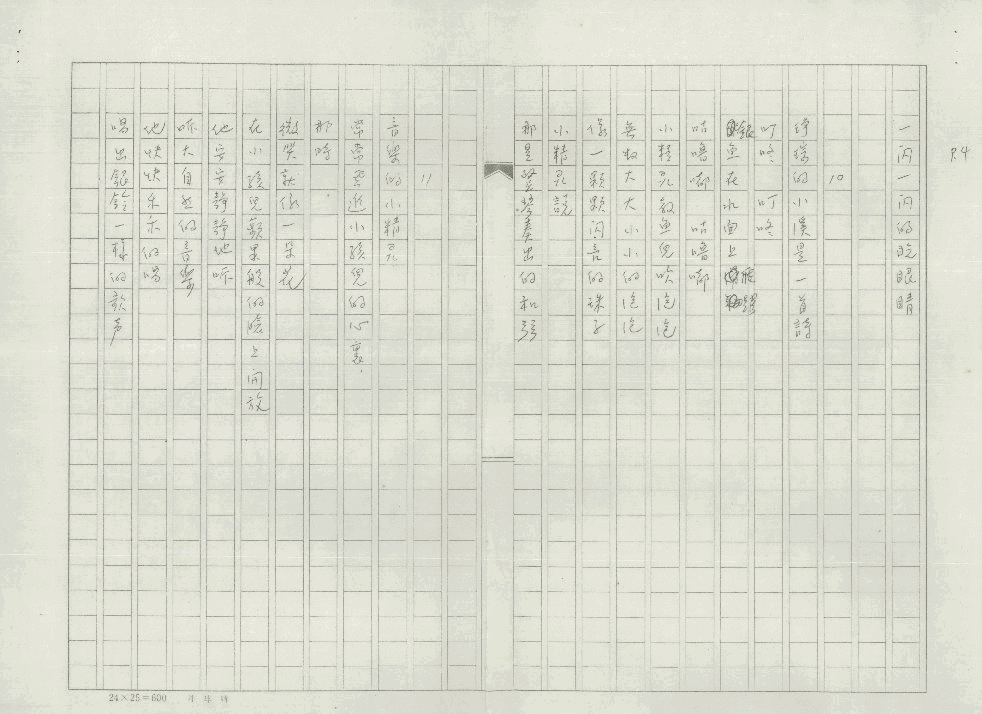 P.4
一闪一闪的眨眼睛
10
淙淙的小溪是一首詩
叮咚 叮咚
銀魚在水面上
咕嚕嘟 咕嚕嘟
小精灵教魚兒吹泡泡
無數大大小小的泡泡
像一顆顆闪亮的珠子
小精灵說
那是豎琴奏出的和弦
11
音樂的小精灵
常常雲遊小孩兒的心裏，
那時，
微笑就像一朵花
在小孩兒蘋果般的臉上開放
他安安靜靜地听
听大自然的音樂
他快快乐乐的唱
唱出銀鈴一樣的歌声
24×25=600